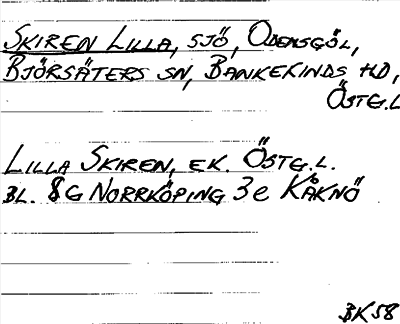 SKIREN LILLA, SJÖ, ODENSGÖL,
BJÖRSÄTERS SN, BANKEKINDS HD,
ÖSTG.L
LILLA SKIREN, EK. ÖSTG.L.
BL. 8G NORRKÖPING 3e KÅKNÖ
BK58